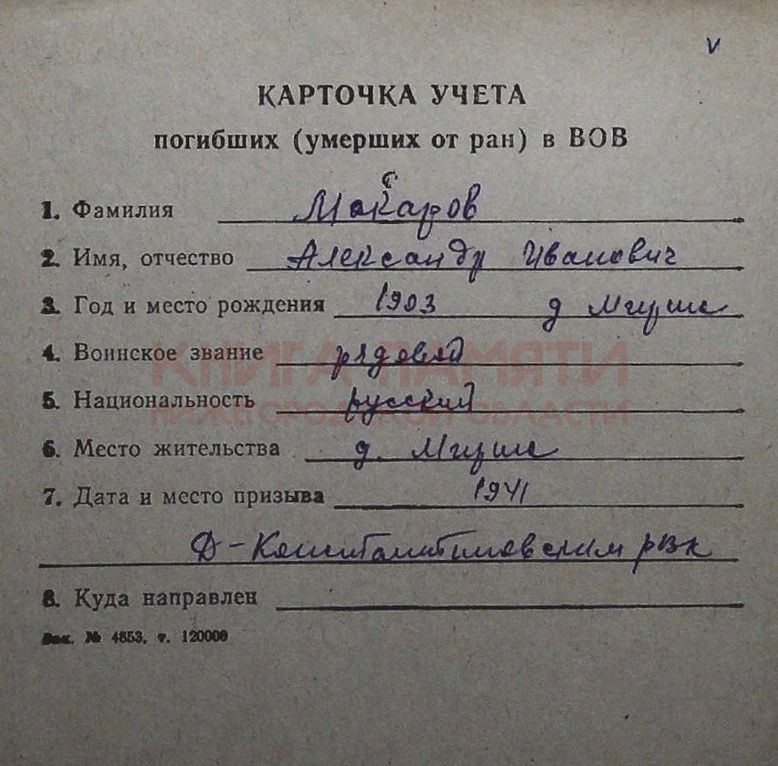 v
КАРТОЧКА УЧЕТА
погибших (умерших от ран) в ВОВ
с
1. Фамилия Макаров
2. Имя, отчество Александр Иванович
3. Год и место рождения 1903 д
4. Воинское звание рядовой
КНИГА ПАМЯТИ
5. Национальность русский
НИЖЕГОРОДСКОЙ ОБЛАСТИ
6. Место жительства д.
7. Дата и место призыва 1941
Д-Константиновским рвк
8. Куда направлен
Зак. № 4853, т. 120000